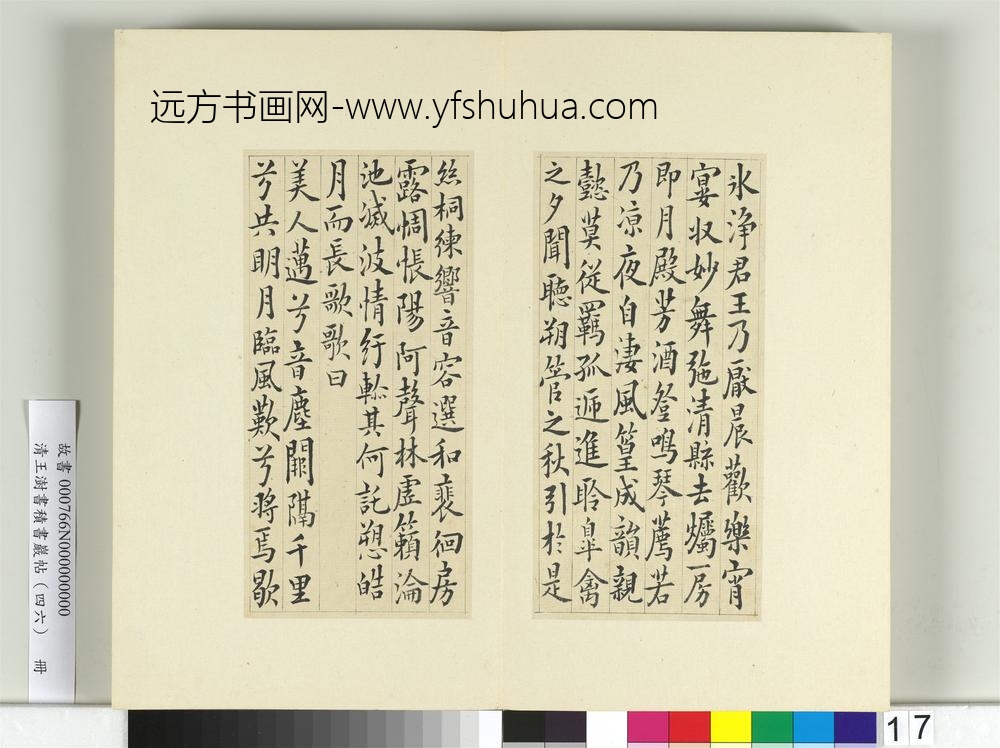 远方书画网-www.yfshuhua.com
氷浄君王乃厭晨歡樂宵
宴収妙舞弛清縣去燭房
即月殿芳酒登鳴琴薦若
乃凉夜自凄風篁成韻親
懿莫從羈孤遞進聆皐禽
之夕聞聴朔管之秋引於是
絲桐練響音容選和裴徊房
露惆悵陽阿聲林虛籟淪
池滅波情紆軫其何託愬皓
月而長歌歌曰
美人邁兮音塵闕隔千里
兮共明月臨風歎兮將焉歇
故書 000766N000000000
清王澍書積書巖帖(四六) 冊
17